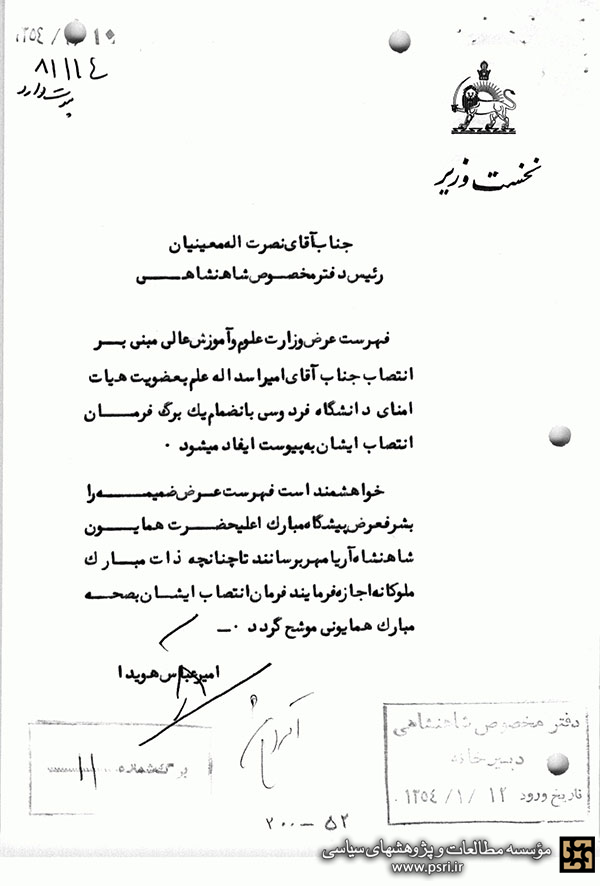 ۸۱۱۱٤
پیوست دارد
نخست وزیر
جناب آقای نصرت اله معینیان
رئیس دفتر مخصوص شاهنشاهی
فهرست عرض وزارت علوم و آموزش عالی مبنی بر
انتصاب جناب آقای امیر اسد اله علم بعضویت هیات
امنای دانشگاه فردوسی بانضمام یك برگ فرمان
انتصاب ایشان به پیوست ایفاد میشود ۰
خواهشمند است فهرست عرض ضمیمه را
بشرفعرض پیشگاه مبارك اعلیحضرت همایون
شاهنشاه آریامهر برسانند تا چنانچه ذات مبارك
ملوکانه اجازه فرمایند فرمان انتصاب ایشان بصحه
مبارك همایونی موشح گردد ۰ـ
امیرعباس هویدا
دفتر مخصوص شاهنشاهی
دبیرخانه
تاریخ ورود ۱۲ /۱/ ۱۳٥٤
برگشماره ۱۱
۲۰۰ - ۵۲
مؤسسه مطالعات و پژوهشهای سیاسی
www.psri.ir